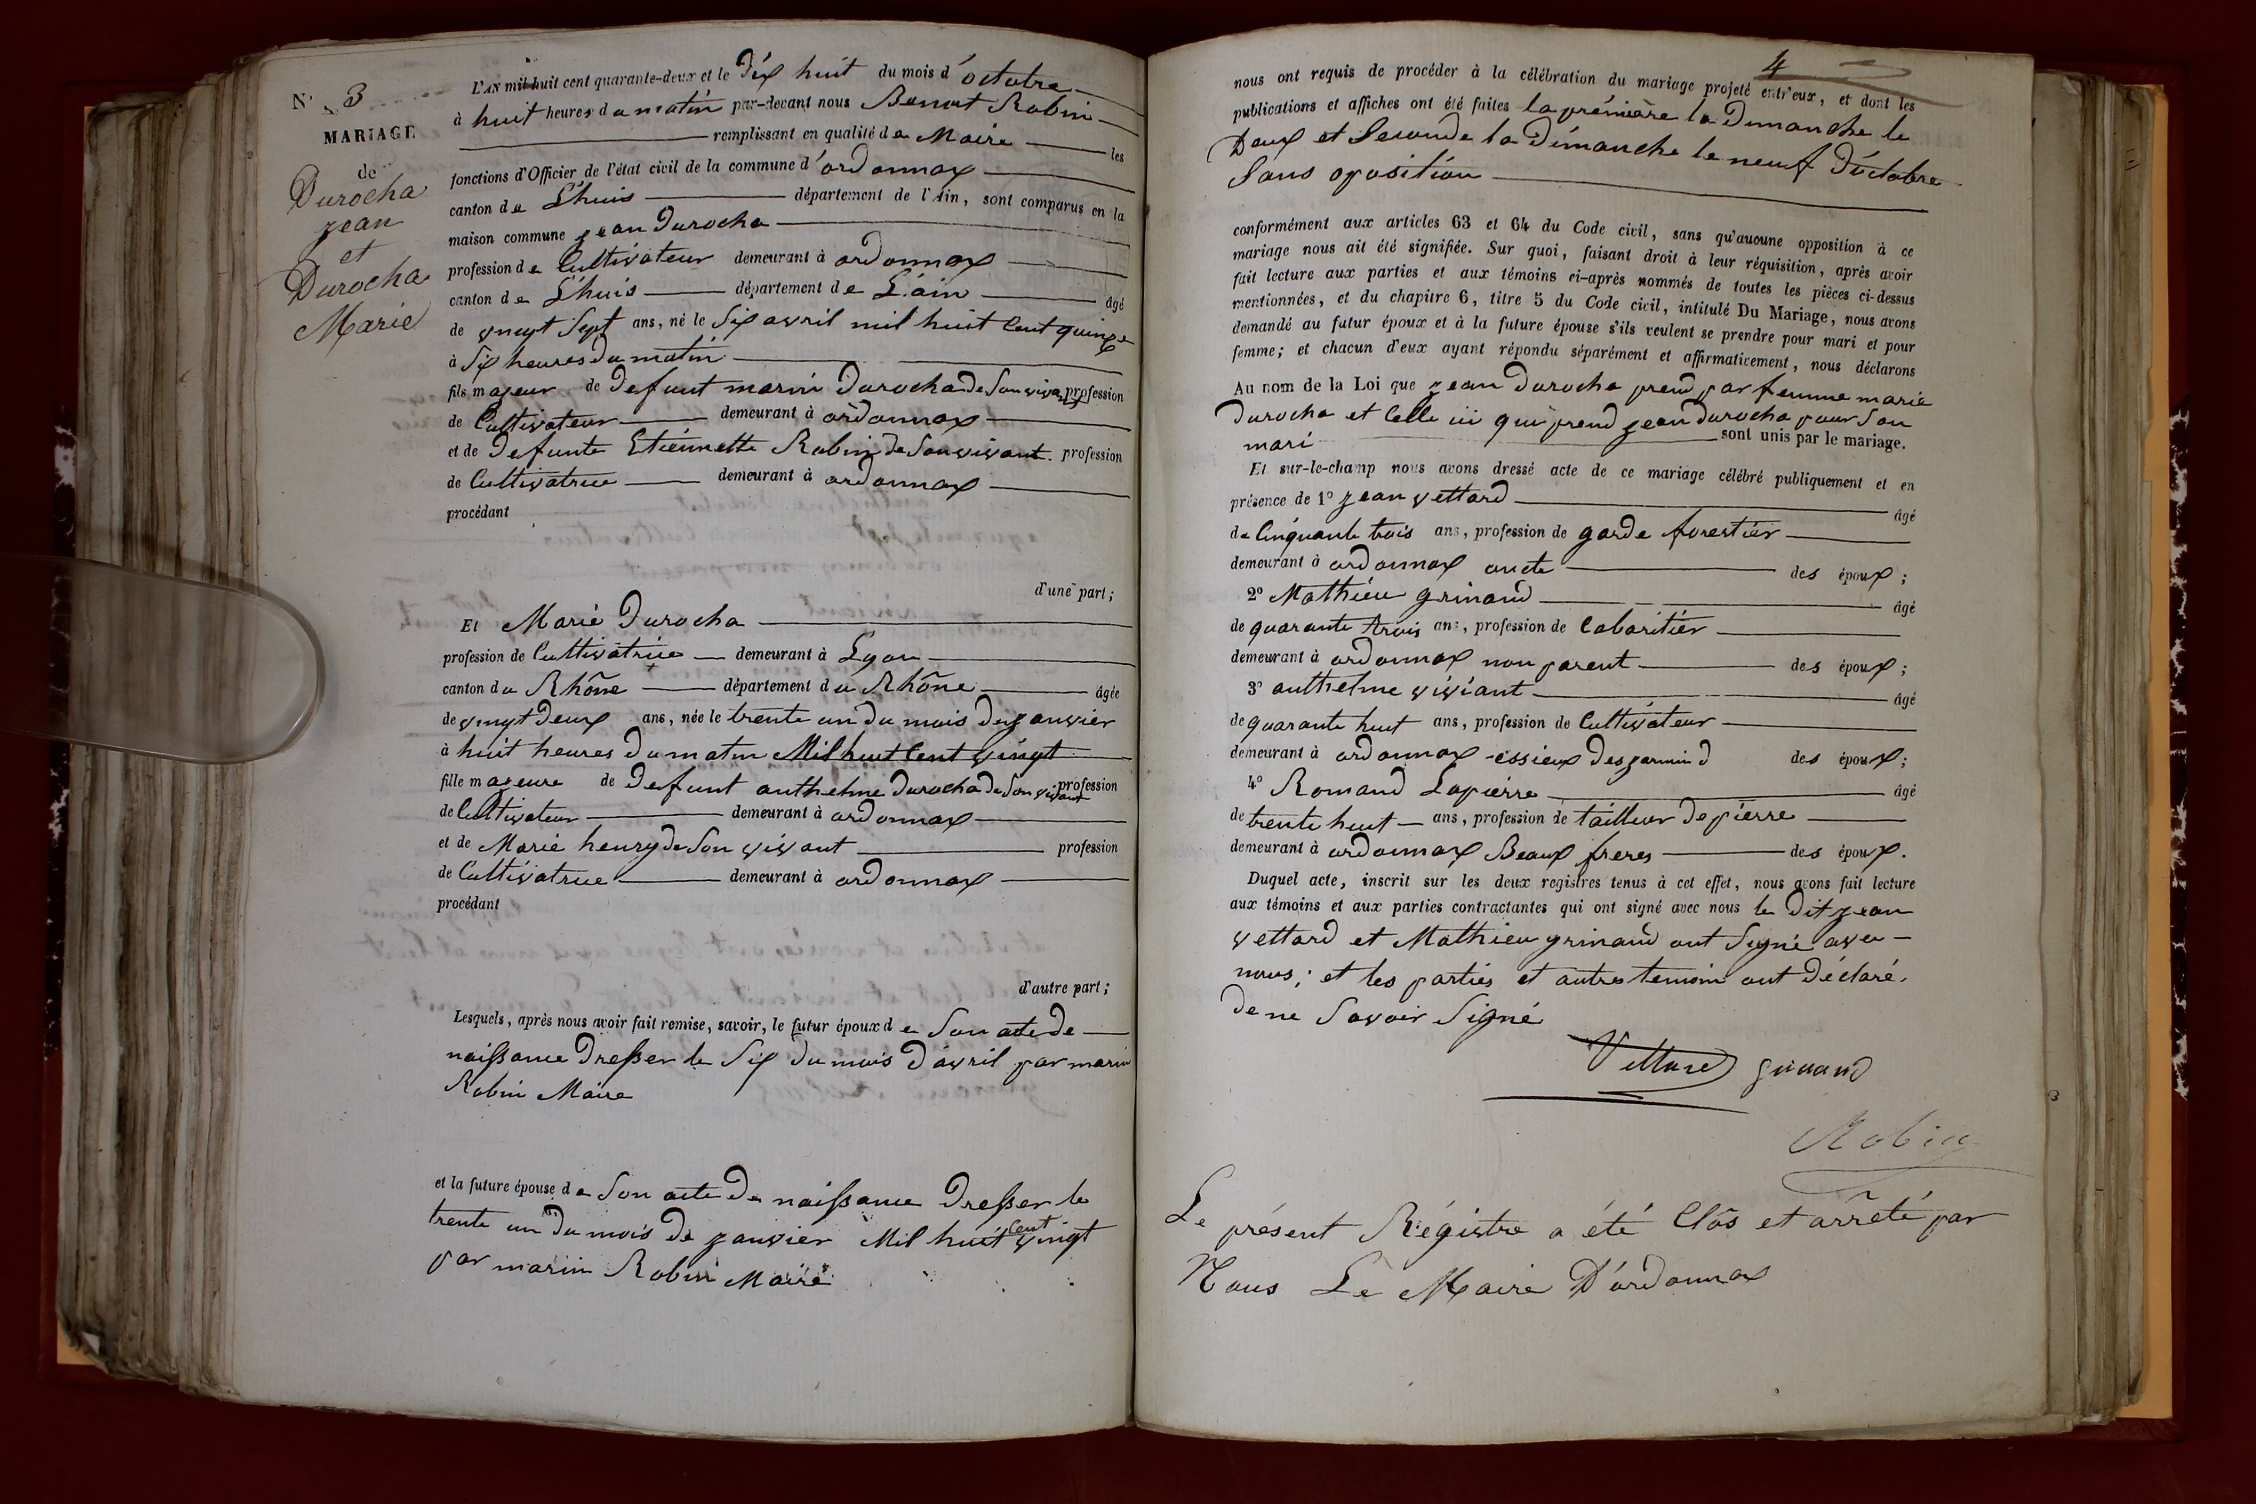 N° 3
MARIAGE
de
Durocha
jean
et
Durocha
Marie
L'AN mil huit cent quarante-deux et le Dix huit du mois d'octobre
à huit heures du matin par-devant nous Benoit Robin
remplissant en qualité de Maire les
fonctions d'Officier de l'état civil de la commune d'ordonnax
canton de L'huis département de l'Ain, sont comparus en la
maison commune jean Durocha
profession de Cultivateur demeurant à ordonnax
canton de L'huis département de L'ain âgé
de vingt Sept ans, né le Six avril mil huit Cent quinze
à Six heures du matin
fils majeur de Defunt marin Durocha de Son vivant profession
de Cultivateur demeurant à ordonnax
et de Defunte Etiennette Robin de Son vivant profession
de Cultivatrice demeurant à ordonnax
procédant
d'une part;
Et Marie Durocha
profession de Cultivatrice demeurant à Lyon
canton du Rhône département du Rhône âgée
de vingt Deux ans, née le trente un du mois de janvier
à huit heures du matin Mil huit Cent vingt
fille majeure de Defunt anthelme Durocha de Son vivant profession
de Cultivateur demeurant à ordonnax
et de Marie henry de Son vivant profession
de Cultivatrice demeurant à ordonnax
procédant
d'autre part;
Lesquels, après nous avoir fait remise, savoir, le futur époux de Son acte de
naissance Dresser le Six du mois D'avril par marin
Robin Maire
et la future épouse de Son acte De naissance Dresser le
trente un Du mois De janvier Mil huit Cent vingt
par marin Robin Maire
4
nous ont requis de procéder à la célébration du mariage projeté entr'eux, et dont les
publications et affiches ont été faites la première le Dimanche le
Deux et Seconde le Dimanche le neuf D'octobre
Sans oposition
conformément aux articles 63 et 64 du Code civil, sans qu'aucune opposition à ce
mariage nous ait été signifiée. Sur quoi, faisant droit à leur réquisition, après avoir
fait lecture aux parties et aux témoins ci-après nommés de toutes les pièces ci-dessus
mentionnées, et du chapitre 6, titre 5 du Code civil, intitulé Du Mariage, nous avons
demandé au futur époux et à la future épouse s'ils veulent se prendre pour mari et pour
femme; et chacun d'eux ayant répondu séparément et affirmativement, nous déclarons
Au nom de la Loi que jean Durocha prend par femme marie
Durocha et Celle ici qui prend jean Durocha pour Son
mari sont unis par le mariage.
Et sur-le-champ nous avons dressé acte de ce mariage célébré publiquement et en
présence de 1° jean vettard âgé
de Cinquante trois ans, profession de garde forestier
demeurant à ordonnax des époux;
2° Mathieu grinand âgé
de quarante trois ans, profession de Cabaritier
demeurant à ordonnax non parent des époux;
3° anthelme viviant âgé
de quarante huit ans, profession de Cultivateur
demeurant à ordonnax des époux;
4° Romand Lapierre âgé
de trente huit ans, profession de tailleur De pierre
demeurant à ordonnax Beaux freres des époux.
Duquel acte, inscrit sur les deux registres tenus à cet effet, nous avons fait lecture
aux témoins et aux parties contractantes qui ont signé avec nous le Dit jean
vettard et Mathieu grinand ont Signé avec
nous; et les parties et autres temoin ont Déclaré
De ne Savoir Signé
Vettard grinand
Robin
Le présent Régistre a été Clôs et arrêté par
Nous Le Maire D'ordonnax